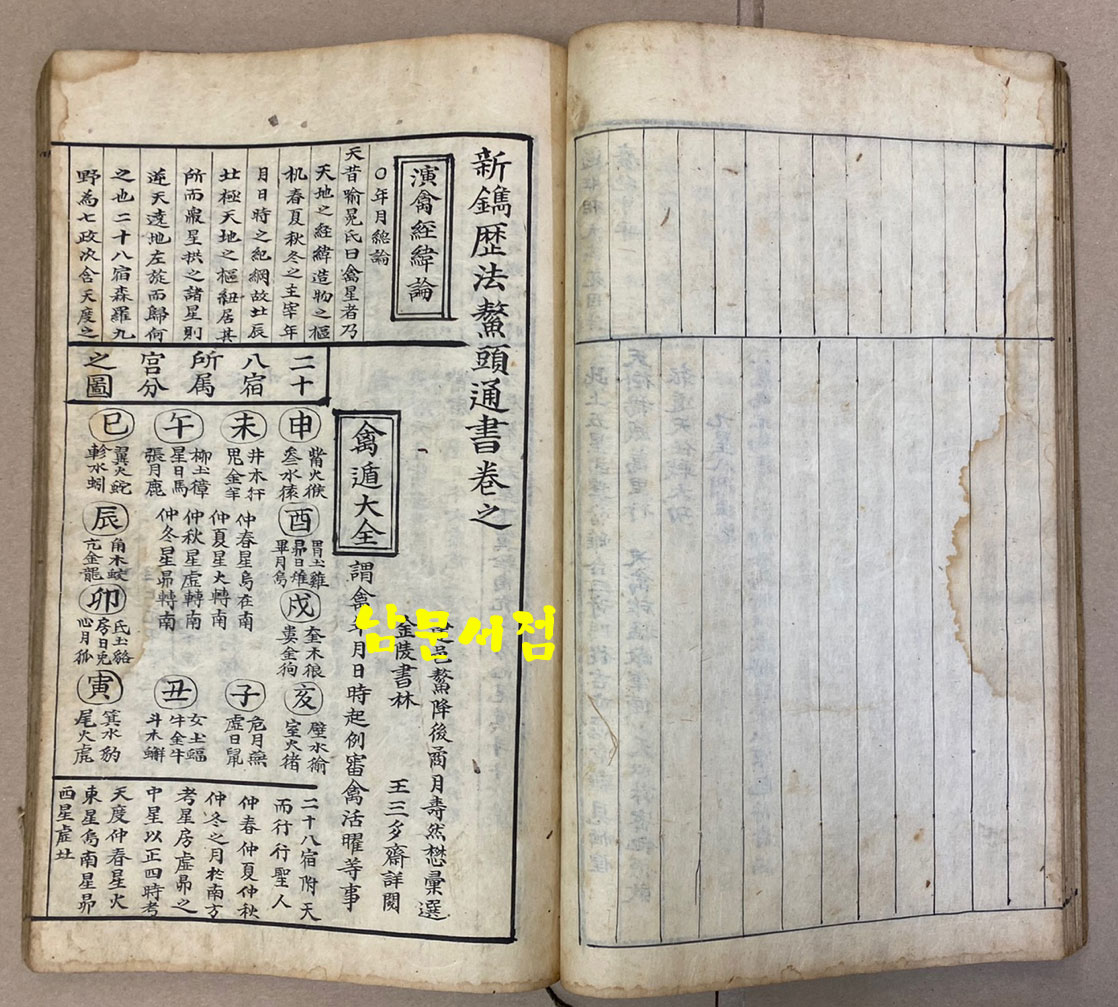 新鐫歴法鰲頭通書卷之
演禽經緯論
○年月總論
天昔喻晃氏曰禽星者乃
天地之経緯造物之樞
机春夏秋冬之主宰年
月日時之紀綱故北辰
北極天地之樞紐居其
所而眾星拱之諸星則
逆天遶地左旋而歸何
之也二十八宿森羅九
野為七政次舍天度之
邑鰲降後裔月壽然懋彙選
金陵書林
王三多齋詳閱
禽遁大全
謂禽年月日時起例審禽活曜等事
二十
八宿
所属
宮分
之圖
申
觜火猴
參水猿
未
井木犴
鬼金羊
午
柳土獐
星日馬
張月鹿
巳
翼火蛇
軫水蚓
酉
胃土雞
昴日雉
畢月烏
仲春星烏在南
仲夏星火轉南
仲秋星虛轉南
仲冬星昴轉南
辰
角木蛟
亢金龍
戌
奎木狼
婁金狗
卯
氐土貉
房日兎
心月狐
亥
壁水㺄
室火猪
子
危月燕
虛日鼠
丑
女土蝠
牛金牛
斗木蟹
寅
箕水豹
尾火虎
二十八宿附天
而行行聖人
仲春仲夏仲秋
仲冬之月於南方
考星房虛昴之
中星以正四時考
天度仲春星火
東星烏南星昴
西星虛北
남문서점